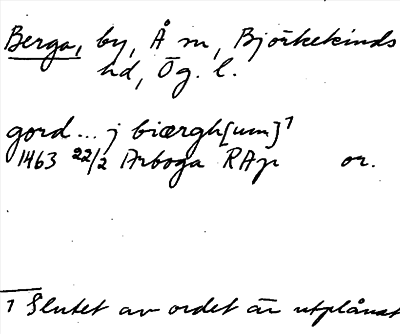 Berga, by, Å sn, Björkekinds
hd, Ög. l.
gord ... j biærgh[um]¹
1463 22/2 Arboga RAp or.
1 Slutet av ordet är utplånat